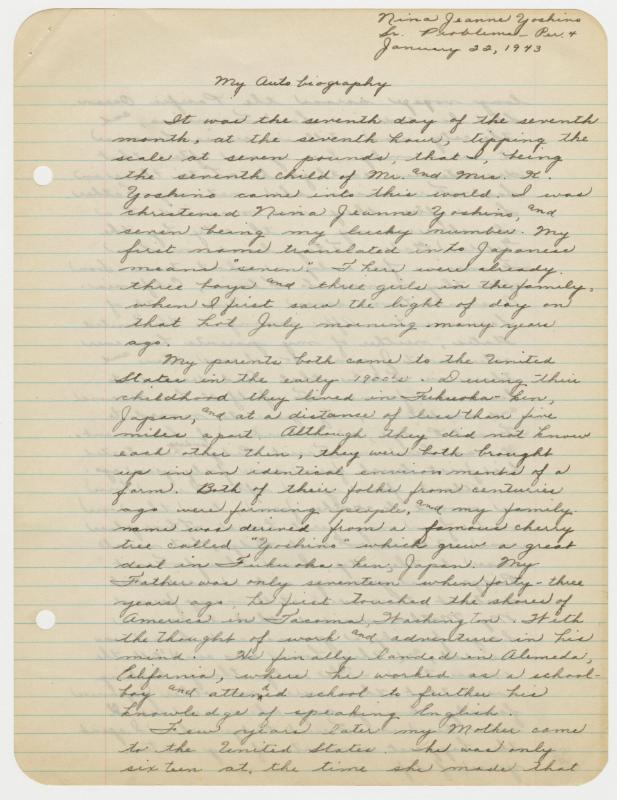 Nina Jeanne Yoshino
Sr. Problems - Per. 4
January 22, 1943
My Autobiography
It was the seventh day of the seventh
month, at the seventh hour, tipping the
scale at seven pounds, that I, being
the seventh child of Mr. and Mrs. K.
Yoshino came into this world. I was
christened Nina Jeanne Yoshino, and
seven being my lucky number. My
first name translated into Japanese
means "seven". There were already
three boys and three girls in the family,
when I first saw the light of day on
that hot July morning many years
ago.
My parents both came to the United
States in the early 1900's. During their
childhood they lived in Fukuoka-ken,
Japan, and at a distance of less than five
miles apart. Although they did not know
each other then, they were both brought
up in an identical environments of a
farm. Both of their folks from centuries
ago were farming people, and my family
name was derived from a famous cherry
tree called "Yoshino" which grew a great
deal in Fukuoka-ken, Japan. My
Father was only seventeen when forty-three
years ago, he first touched the shores of
America in Tacoma, Washington. With
the thought of work and adventure in his
mind. He finally landed in Alameda,
California, where he worked as a school-
boy and attended school to further his
knowledge of speaking English.
Few years later my Mother came
to the United States. She was only
sixteen at, the time she made that